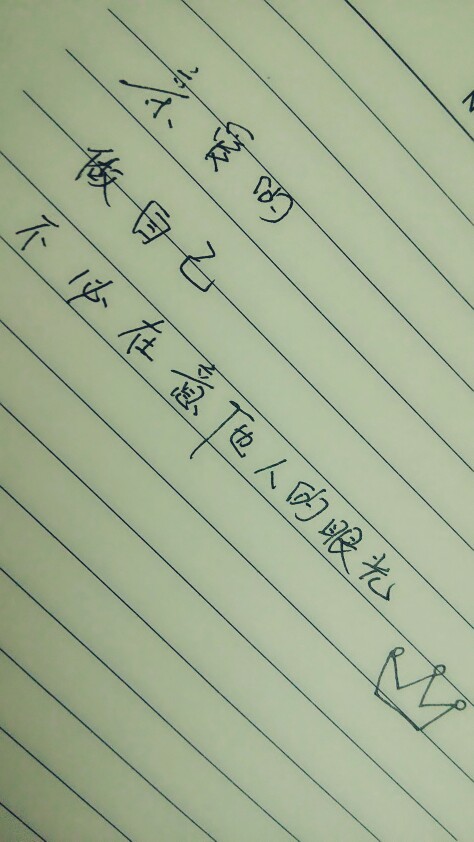 亲爱的
做自己
不必在意他人的眼光